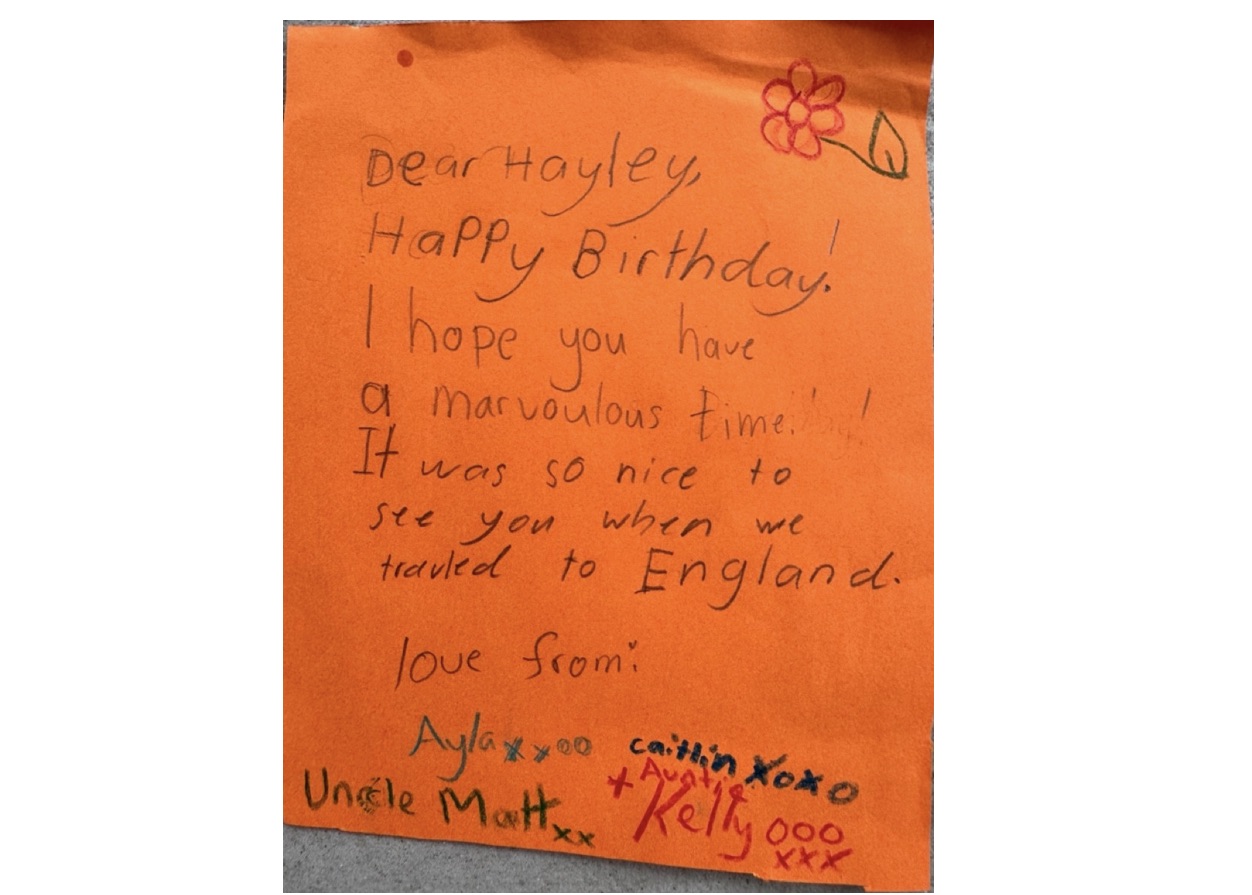 Dear Hayley,
Happy Birthday!
I hope you have
a marvoulous time!
It was so nice to
see you when we
travled to England.
love from:
Ayla xxoo caitlin XoXo
Uncle Matt xx + Auntie Kelly ooo xxx